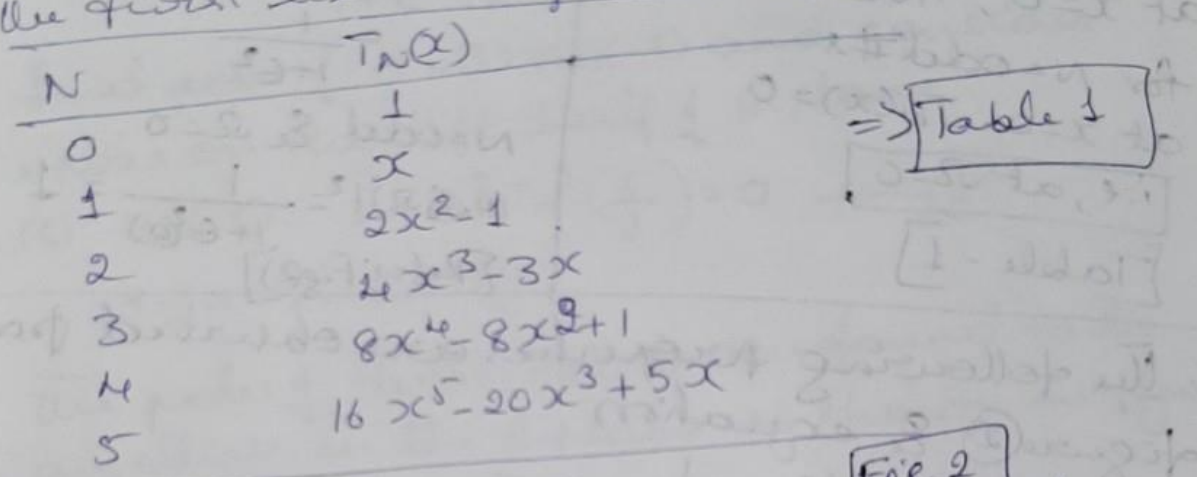 the
N TN(x)
0 1
1 x
2 2x²-1
3 4x³-3x
4 8x⁴-8x²+1
5 16x⁵-20x³+5x
=> Table 1
Fig 2